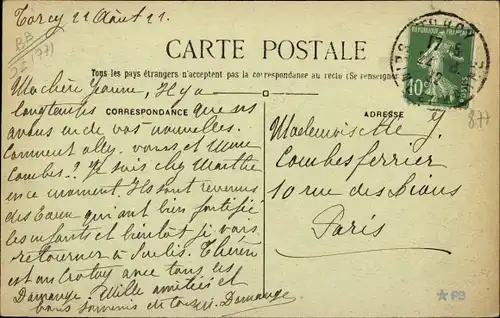 Torcy 22 Août 22.
BB
(77)
CARTE POSTALE
Tous les pays étrangers n'acceptent pas la correspondance au recto (Se renseigner
RÉPUBLIQUE FRANÇAISE
10c
Ma chère Jeanne, Il y a
longtemps que ns
CORRESPONDANCE
ADRESSE
avons eu de vos nouvelles.
Comment allez-vous et Mme
Combes? Je suis chez Marthe
en ce moment. Ils sont revenus
des Eaux qui ont bien fortifié
les enfants et bientôt je vais
retourner à Senlis. Thérèse
est au Crotoy avec tous les
Domange. Mille amitiés et
bons souvenirs de tous. Domange
Mademoiselle J.
Combesferrier
10 rue des Lions
Paris
877